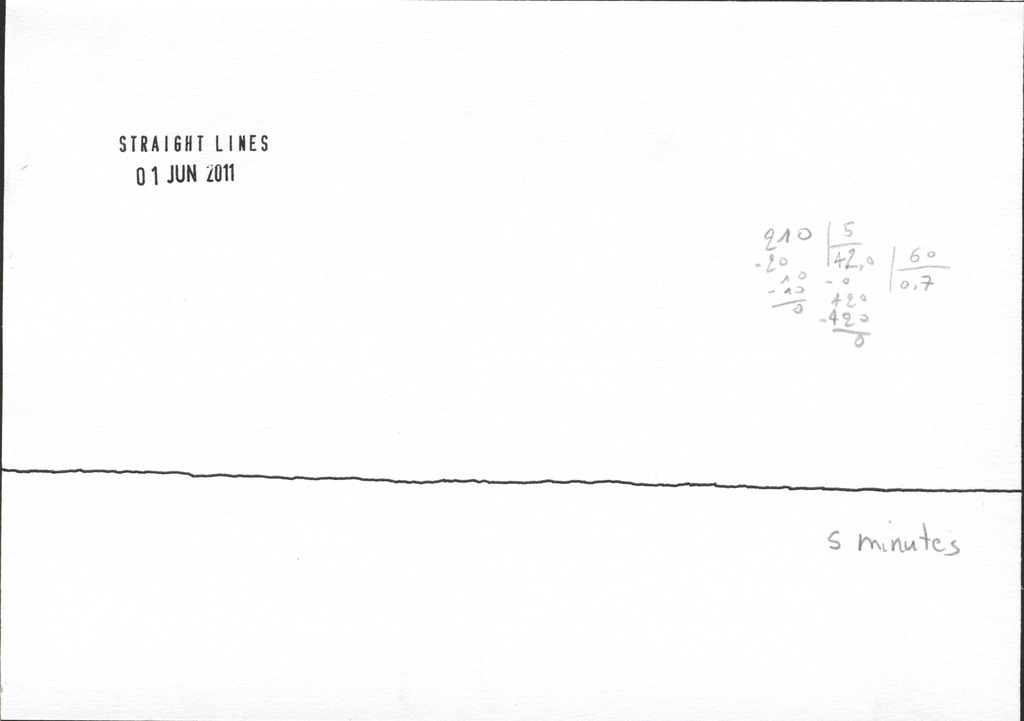 STRAIGHT LINES
01 JUN 2011
210 | 5
-20 42,0 | 60
10 -0 0,7
-10 420
0 -420
0
5 minutes